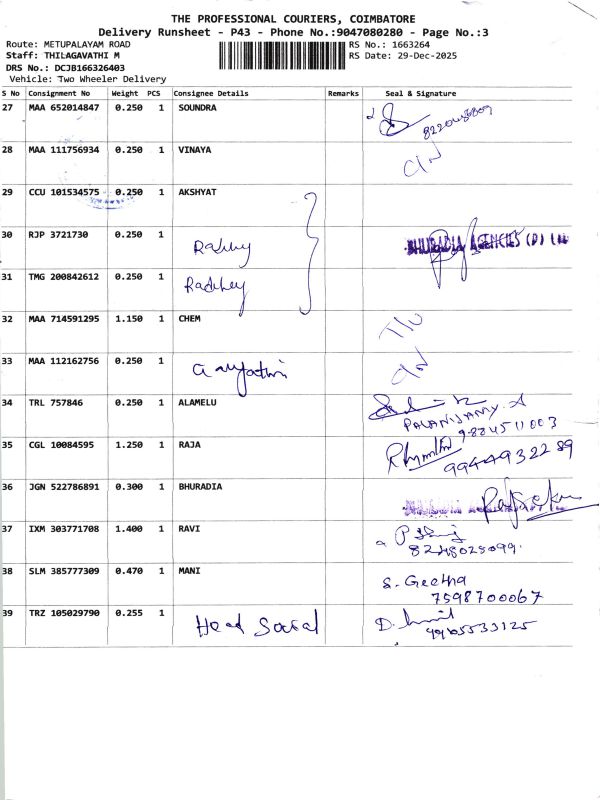 THE PROFESSIONAL COURIERS, COIMBATORE
Delivery Runsheet - P43 - Phone No.:9047080280 - Page No.:3
Route: METUPALAYAM ROAD RS No.: 1663264
Staff: THILAGAVATHI M RS Date: 29-Dec-2025
DRS No.: DCJB166326403
Vehicle: Two Wheeler Delivery
S No Consignment No Weight PCS Consignee Details Remarks Seal & Signature
27 MAA 652014847 0.250 1 SOUNDRA
28 MAA 111756934 0.250 1 VINAYA
29 CCU 101534575 0.250 1 AKSHYAT
30 RJP 3721730 0.250 1 BHURADIA AGENCIES (P)
31 TMG 200842612 0.250 1
32 MAA 714591295 1.150 1 CHEM
33 MAA 112162756 0.250 1
34 TRL 757846 0.250 1 ALAMELU
PALANISAMY. A
35 CGL 10084595 1.250 1 RAJA
9944932289
36 JGN 522786891 0.300 1 BHURADIA
37 IXM 303771708 1.400 1 RAVI
8248025099
38 SLM 385777309 0.470 1 MANI S. Geetha
7598700067
39 TRZ 105029790 0.255 1